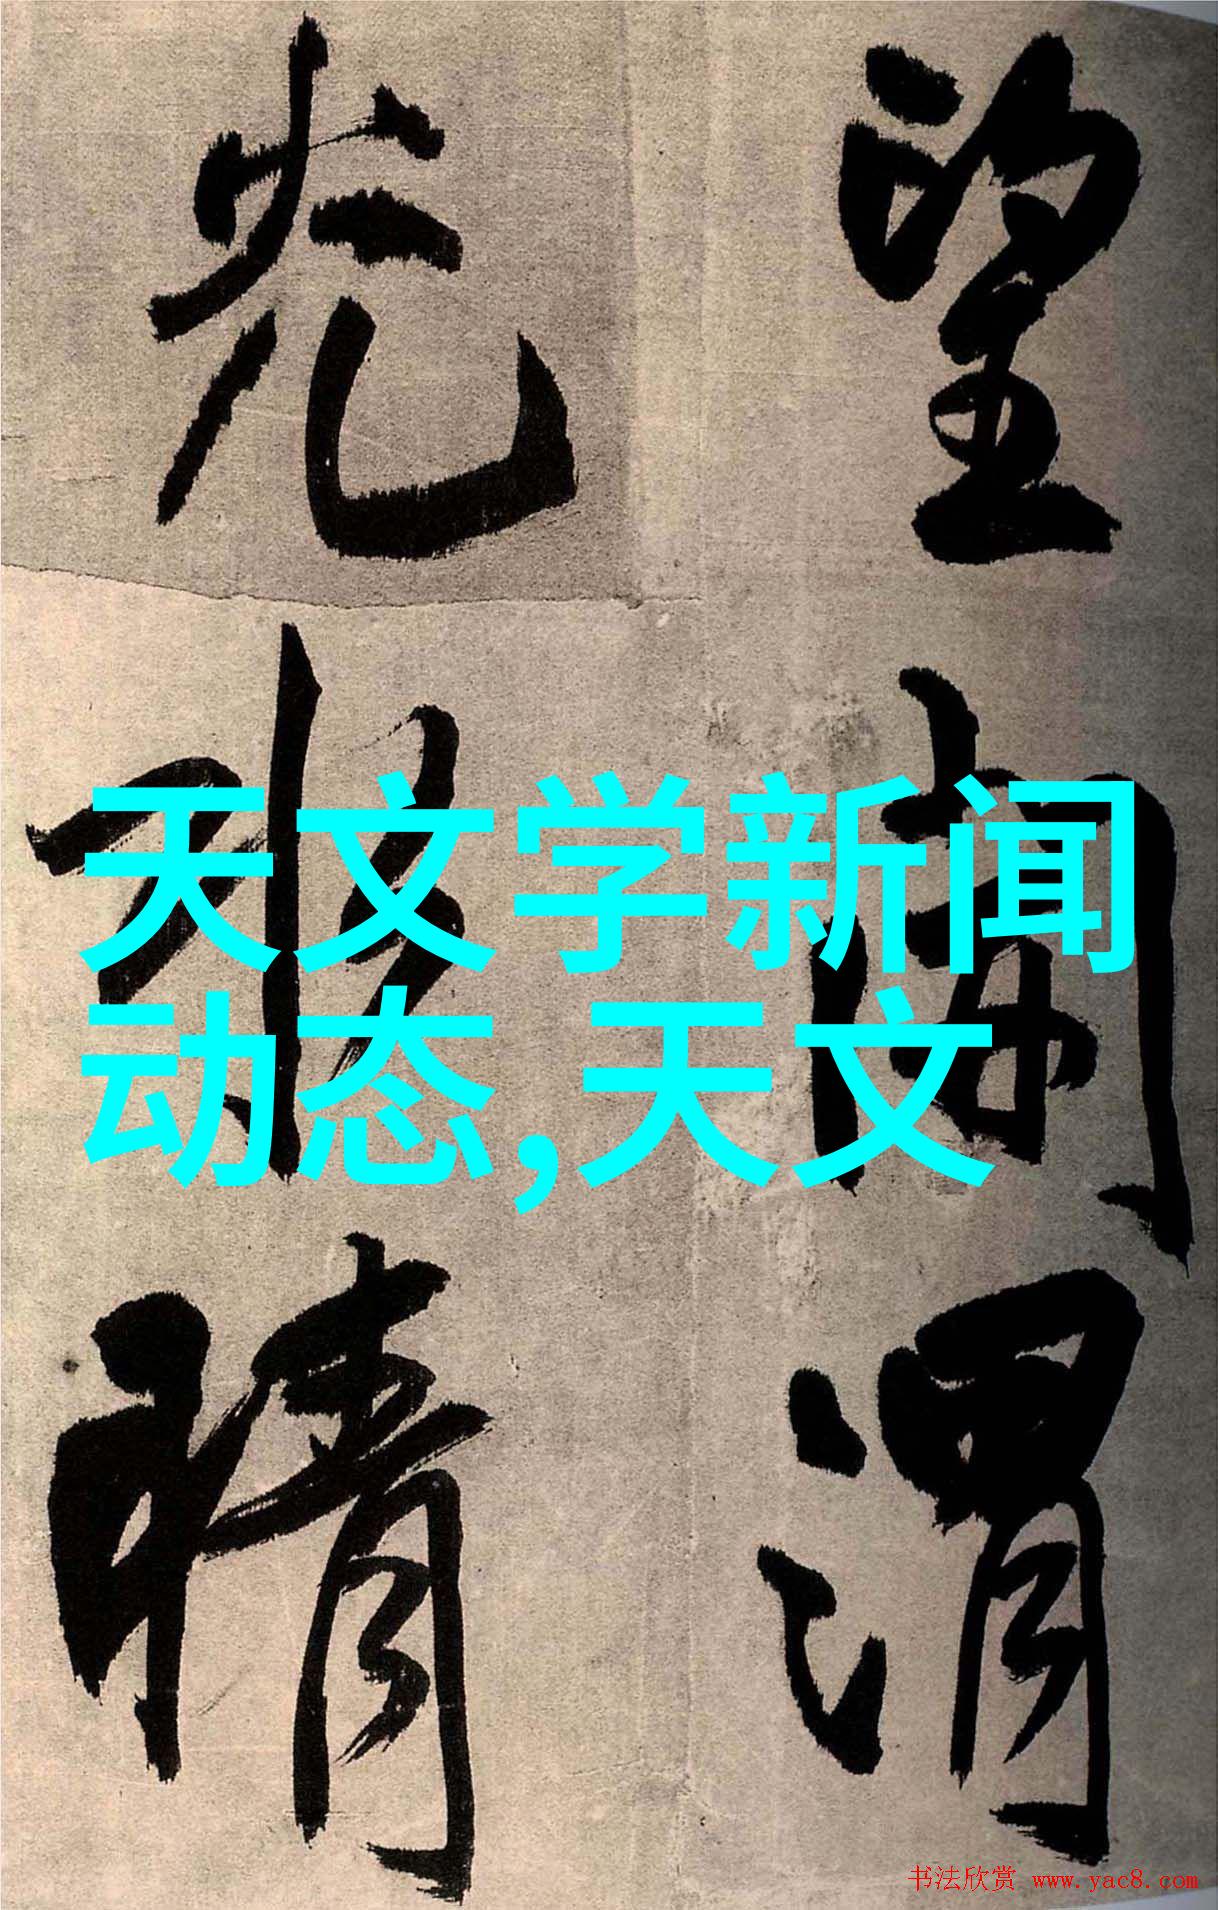 望
渭
光
晴
天文学新闻
动态,天文
书法欣赏 www.yac8.com